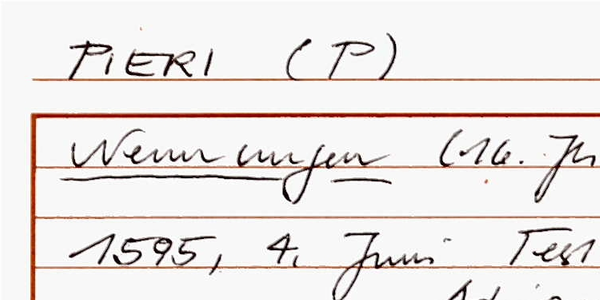 PIERI (P)
Nennungen (16. Jh
1595, 4. Juni Test